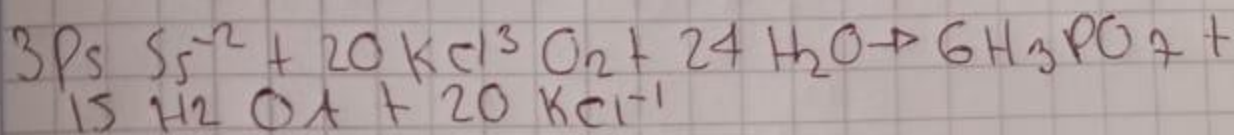 3Ps S5^-2 + 20 KCl^3 O2 + 24 H2O → 6H3PO4 +
15 H2 O4 + 20 KCl^-1